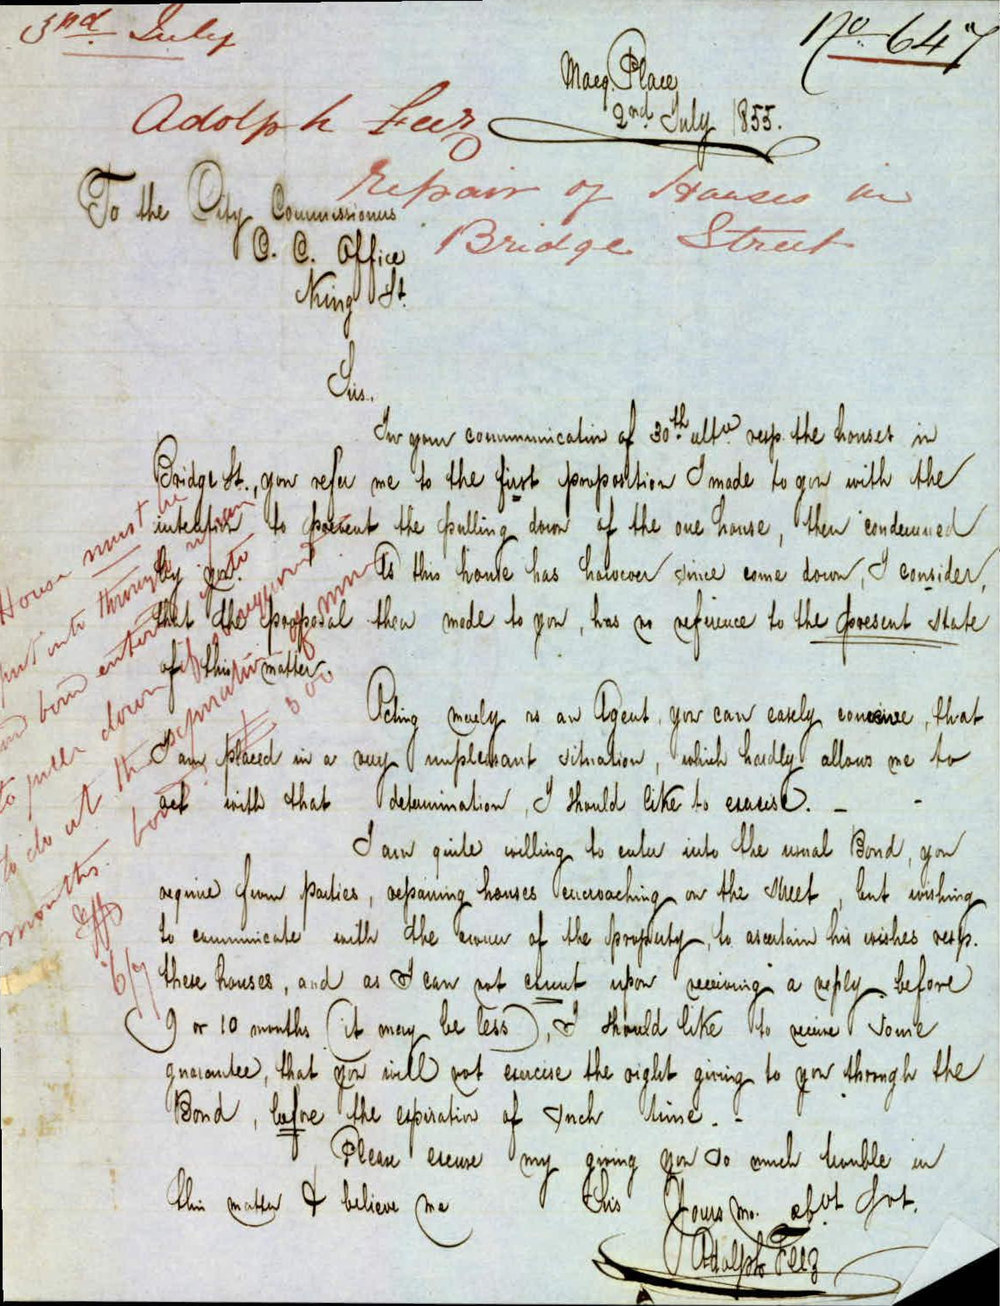 3rd July
No 647
Macq. Place
2nd July 1855.
Adolph Feez
Repair of Houses in
Bridge Street
To the City Commissioners
C. C. Office
King St.
Sirs.
In your communication of 30th ulto resp. the houses in
Bridge St., you refer me to the first proposition I made to you with the
intention to prevent the pulling down of the one house, then condemned
by you. As this house has however since come down, I consider,
that the proposal then made to you, has no reference to the present state
of this matter.
Acting merely as an Agent, you can easely conceive, that
I am placed in a very unpleasant situation, which hardly allows me to
act with that determination, I should like to exercise. –
I am quite willing to enter into the usual Bond, you
require from parties, repairing houses encroaching on the street, but wishing
to communicate with the owner of the property, to ascertain his wishes resp.
these houses, and as I can not count upon receiving a reply before
9 or 10 months (it may be less), I should like to receive some
guarantee, that you will not exercise the right giving to you through the
Bond, before the expiration of such time. –
Please excuse my giving you so much trouble in
this matter & believe me Sirs Yours mo. obvt Svt.
Adolph Feez
House must be
put into through repair
and bond entered into
to pull down if required
to do at the expiration of nine
months. bond £300
6/7